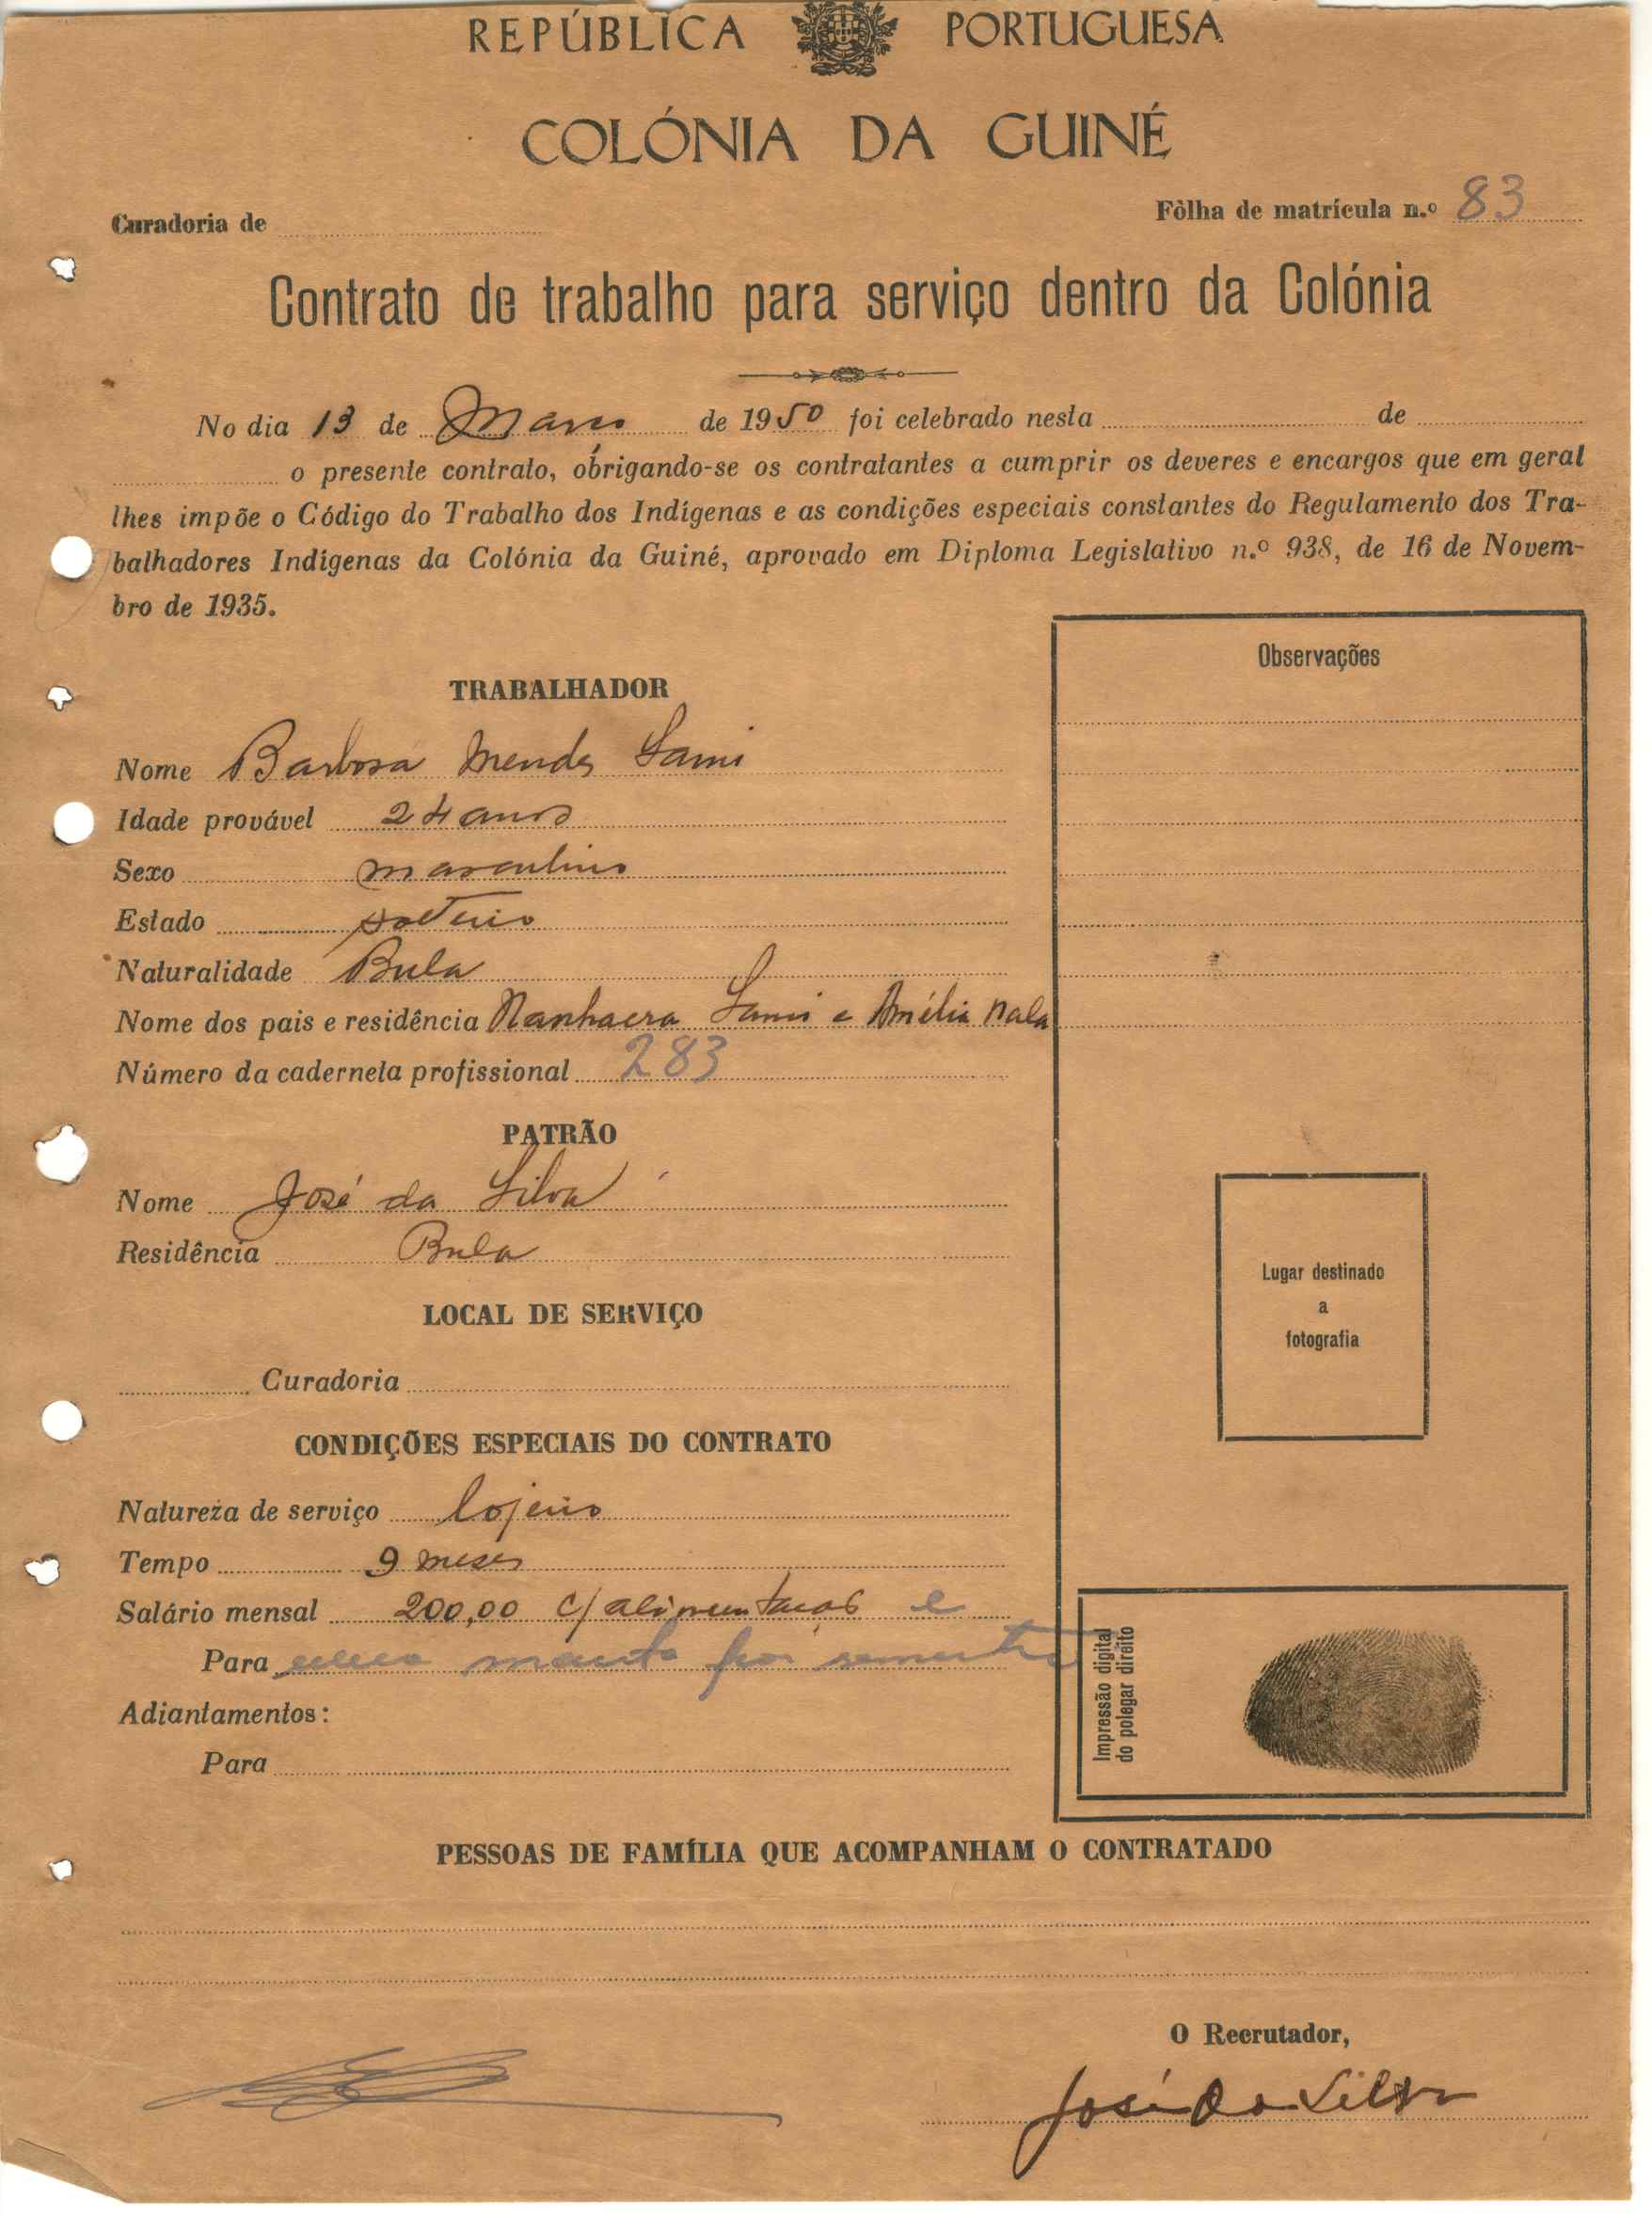 REPÚBLICA PORTUGUESA
COLÓNIA DA GUINÉ
Curadoria de
Fôlha de matrícula n.º 83
Contrato de trabalho para serviço dentro da Colónia
No dia 13 de Março de 1950 foi celebrado nesta de
o presente contrato, obrigando-se os contratantes a cumprir os deveres e encargos que em geral
lhes impõe o Código do Trabalho dos Indígenas e as condições especiais constantes do Regulamento dos Tra-
balhadores Indígenas da Colónia da Guiné, aprovado em Diploma Legislativo n.º 938, de 16 de Novem-
bro de 1935.
Observações
TRABALHADOR
Nome Barbosa Mendes Sami
Idade provável 24 anos
Sexo masculino
Estado solteiro
Naturalidade Bula
Nome dos pais e residência Sami e Amélia Nala
Número da caderneta profissional 283
PATRÃO
Nome José da Silva
Residência Bula
LOCAL DE SERVIÇO
Curadoria
Lugar destinado
a
fotografia
CONDIÇÕES ESPECIAIS DO CONTRATO
Natureza de serviço lojeiro
Tempo 9 meses
Salário mensal 200,00 c/ alimentação e
Para uma manta por semestre
Adiantamentos:
Para
Impressão digital
do polegar direito
PESSOAS DE FAMÍLIA QUE ACOMPANHAM O CONTRATADO
O Recrutador,
José Da Silva